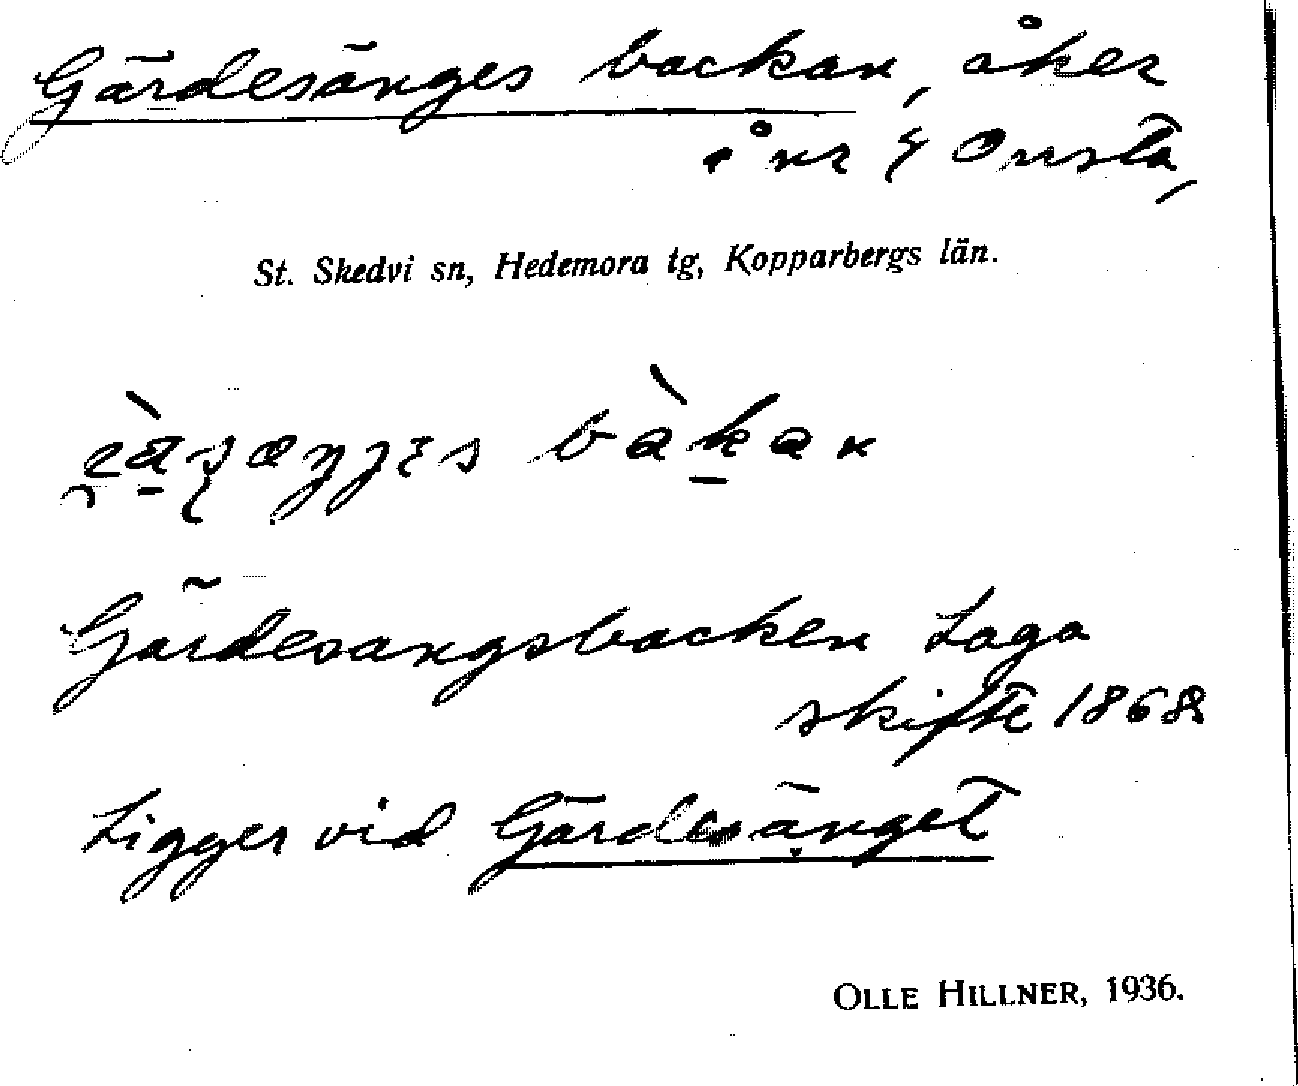 Gärdesänges backan, åker
å nr 4 Onsta,
St. Skedvi sn, Hedemora tg, Kopparbergs län.
bàkan
Gärdesangsbacken Laga
skifte 1868
Ligger vid Gärdesänget
OLLE HILLNER, 1936.